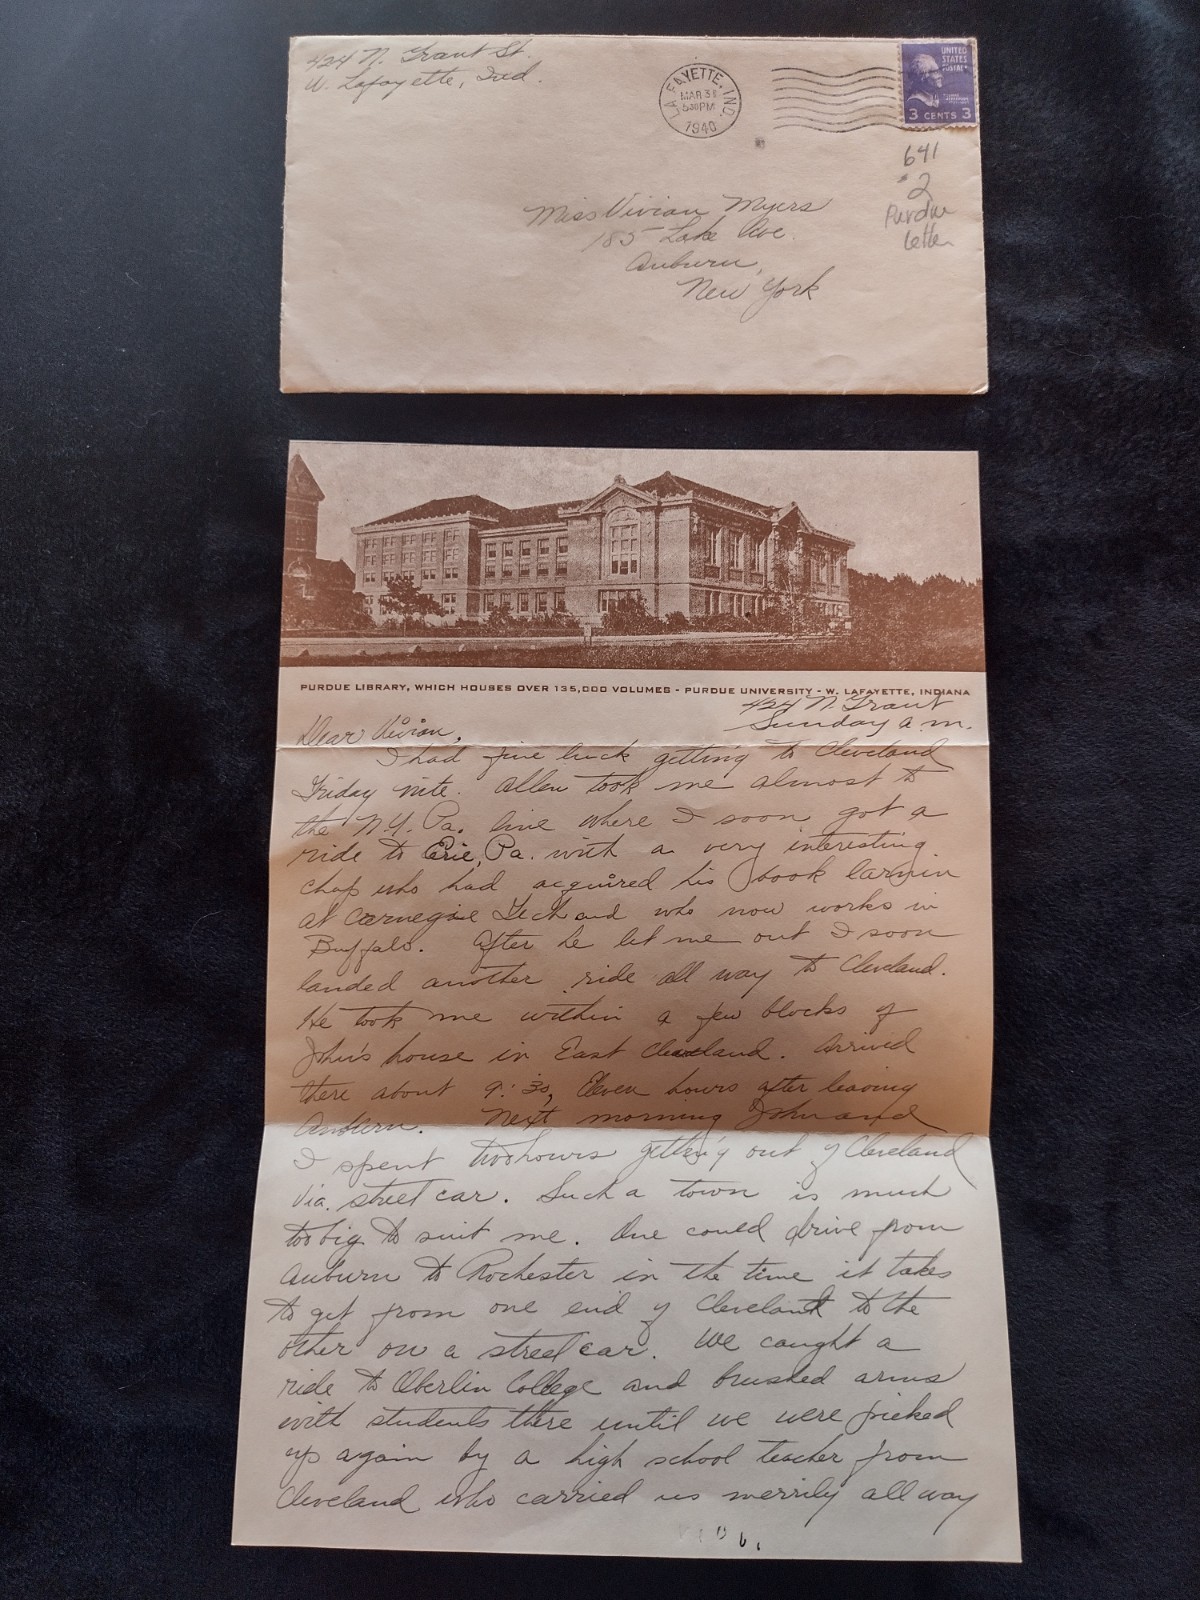 424 N. Grant St.
W. Lafayette, Ind.
LAFAYETTE, IND.
MAR 31
5 30 PM
1940
UNITED
STATES
POSTAGE
3 CENTS 3
641
#2
Purdue
letter
Miss Vivian Myers
185 Lake Ave.
Auburn,
New York
PURDUE LIBRARY, WHICH HOUSES OVER 135,000 VOLUMES - PURDUE UNIVERSITY - W. LAFAYETTE, INDIANA
424 N. Grant
Sunday a.m.
Dear Vivian,
I had fine luck getting to Cleveland
Friday nite. Allen took me almost to
the N.Y. Pa. line where I soon got a
ride to Erie, Pa. with a very interesting
chap who had acquired his book larnin
at Carnegie Tech and who now works in
Buffalo. After he let me out I soon
landed another ride all way to Cleveland.
He took me within a few blocks of
John's house in East Cleveland. Arrived
there about 9:30, Eleven hours after leaving
Auburn. Next morning John and
I spent two hours getting out of Cleveland
via. street car. Such a town is much
too big to suit me. One could drive from
Auburn to Rochester in the time it takes
to get from one end of Cleveland to the
other on a street car. We caught a
ride to Oberlin College and brushed arms
with students there until we were picked
up again by a high school teacher from
Cleveland who carried us merrily all way